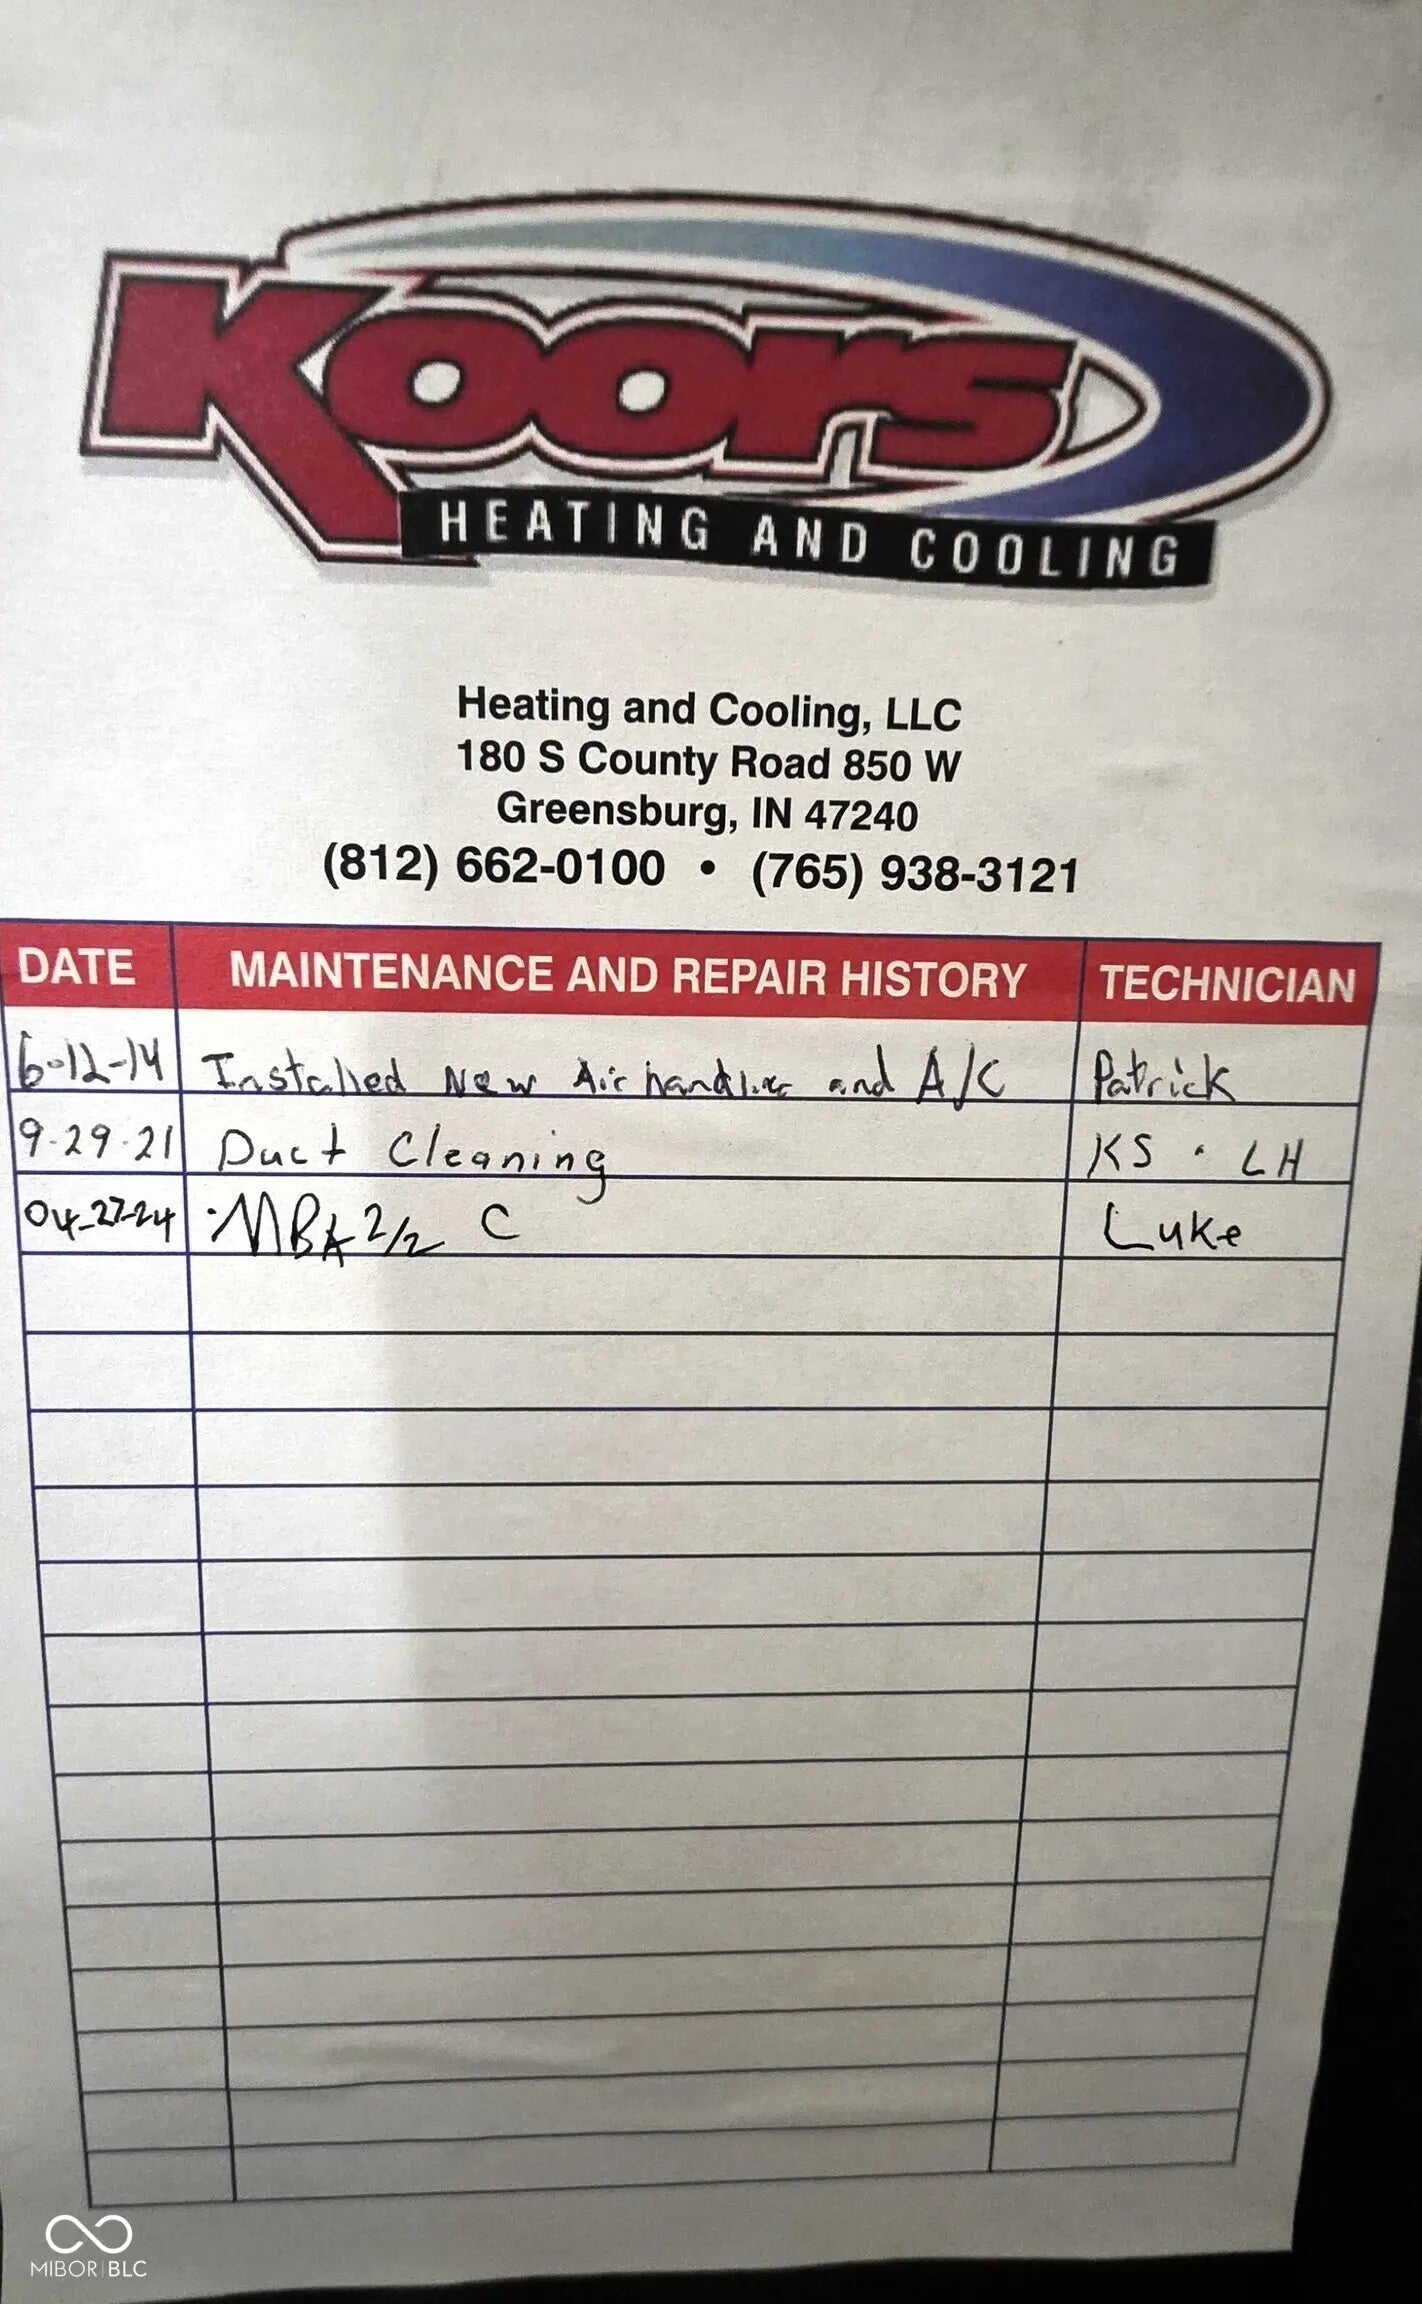 Koors
HEATING AND COOLING
Heating and Cooling, LLC
180 S County Road 850 W
Greensburg, IN 47240
(812) 662-0100 • (765) 938-3121
DATE MAINTENANCE AND REPAIR HISTORY TECHNICIAN
6-12-14 Installed New Air handler and A/C Patrick
9-29-21 Duct Cleaning KS · LH
04-27-24 MBA 2/2 C Luke
MIBOR|BLC